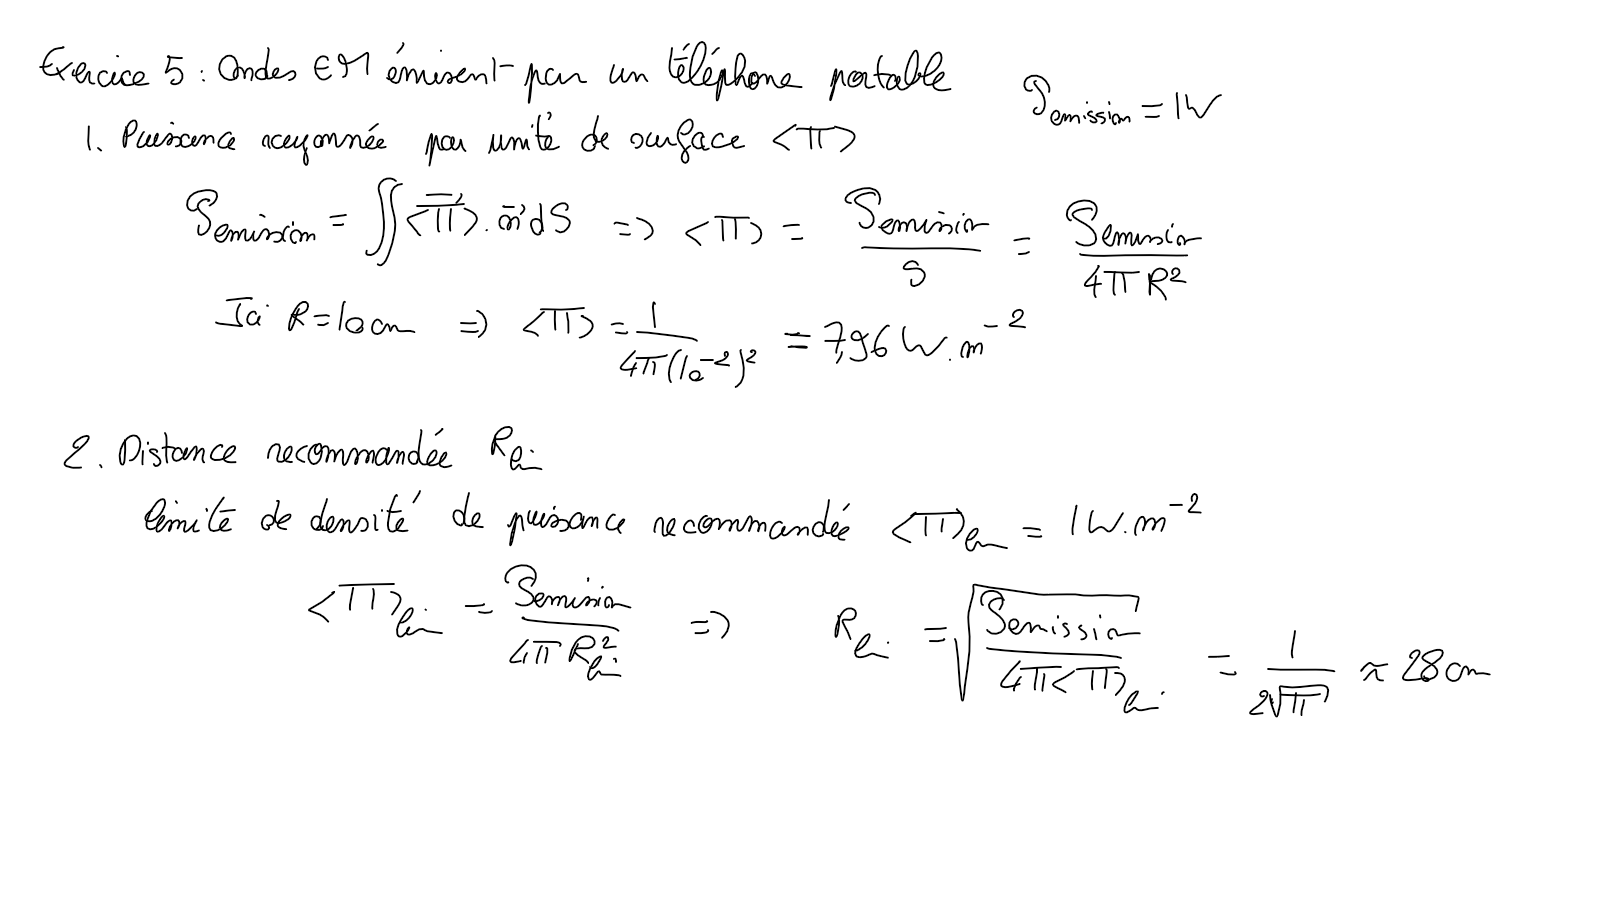 Exercice 5 : Ondes EM émisent par un téléphone portable
P_emission = 1W
1. Puissance rayonnée par unité de surface <Π>
P_emission = ∬ <Π⃗>. n⃗ dS => <Π> = P_emission / S = P_emission / 4πR²
Ici R = 10 cm => <Π> = 1 / 4π(10⁻²)² = 7,96 W.m⁻²
2. Distance recommandée R_lim
limite de densité de puissance recommandée <Π>_lim = 1 W.m⁻²
<Π>_lim = P_emission / 4πR_lim² => R_lim = √(P_emission / 4π<Π>_lim) = 1 / 2√π ≈ 28 cm